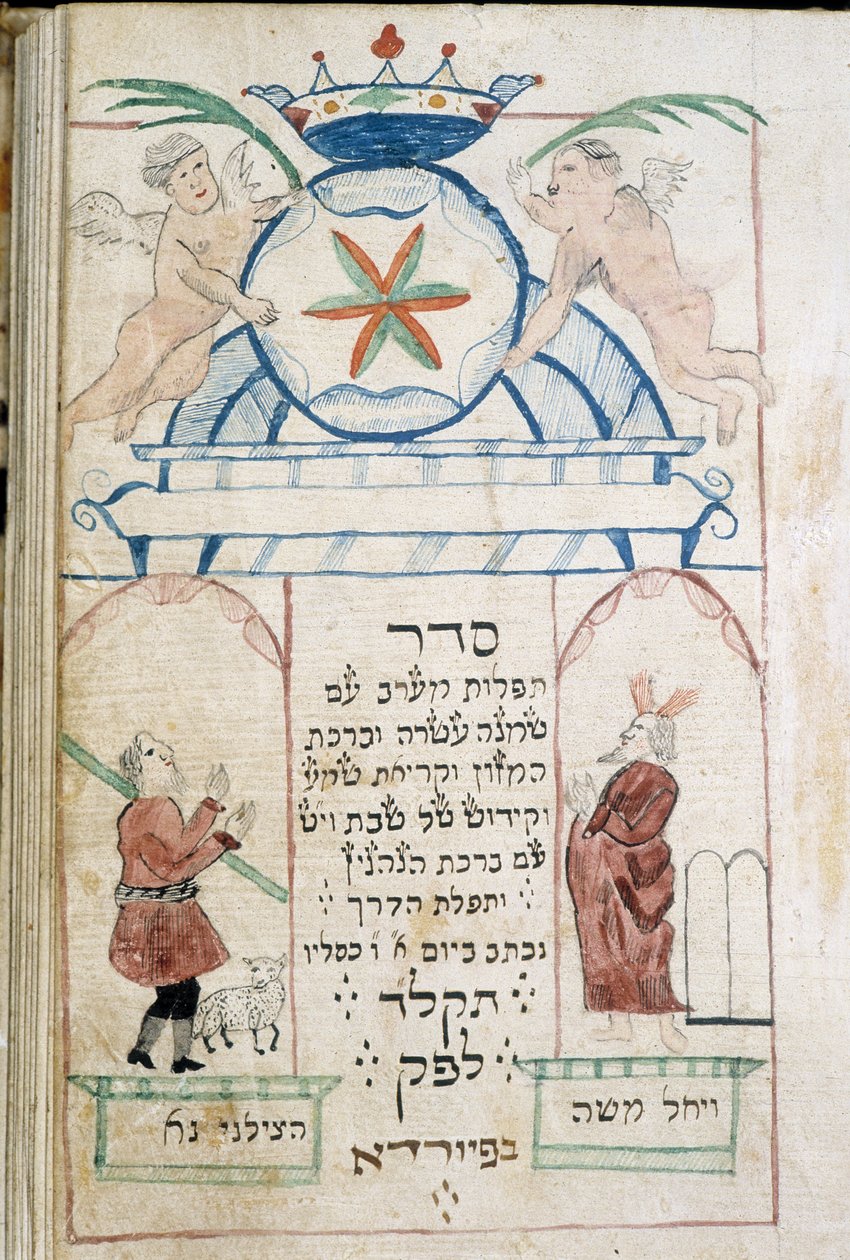 סדר
תפלות מערב עם
שמנה עשרה וברכת
המזון וקריאת שמע
וקידוש של שבת וי״ט
עם ברכת הנהנין
ותפלת הדרך
נכתב ביום א׳ ו׳ כסליו
תקל״ד
לפק
הצילני נא
ויחל משה
בפיורדא